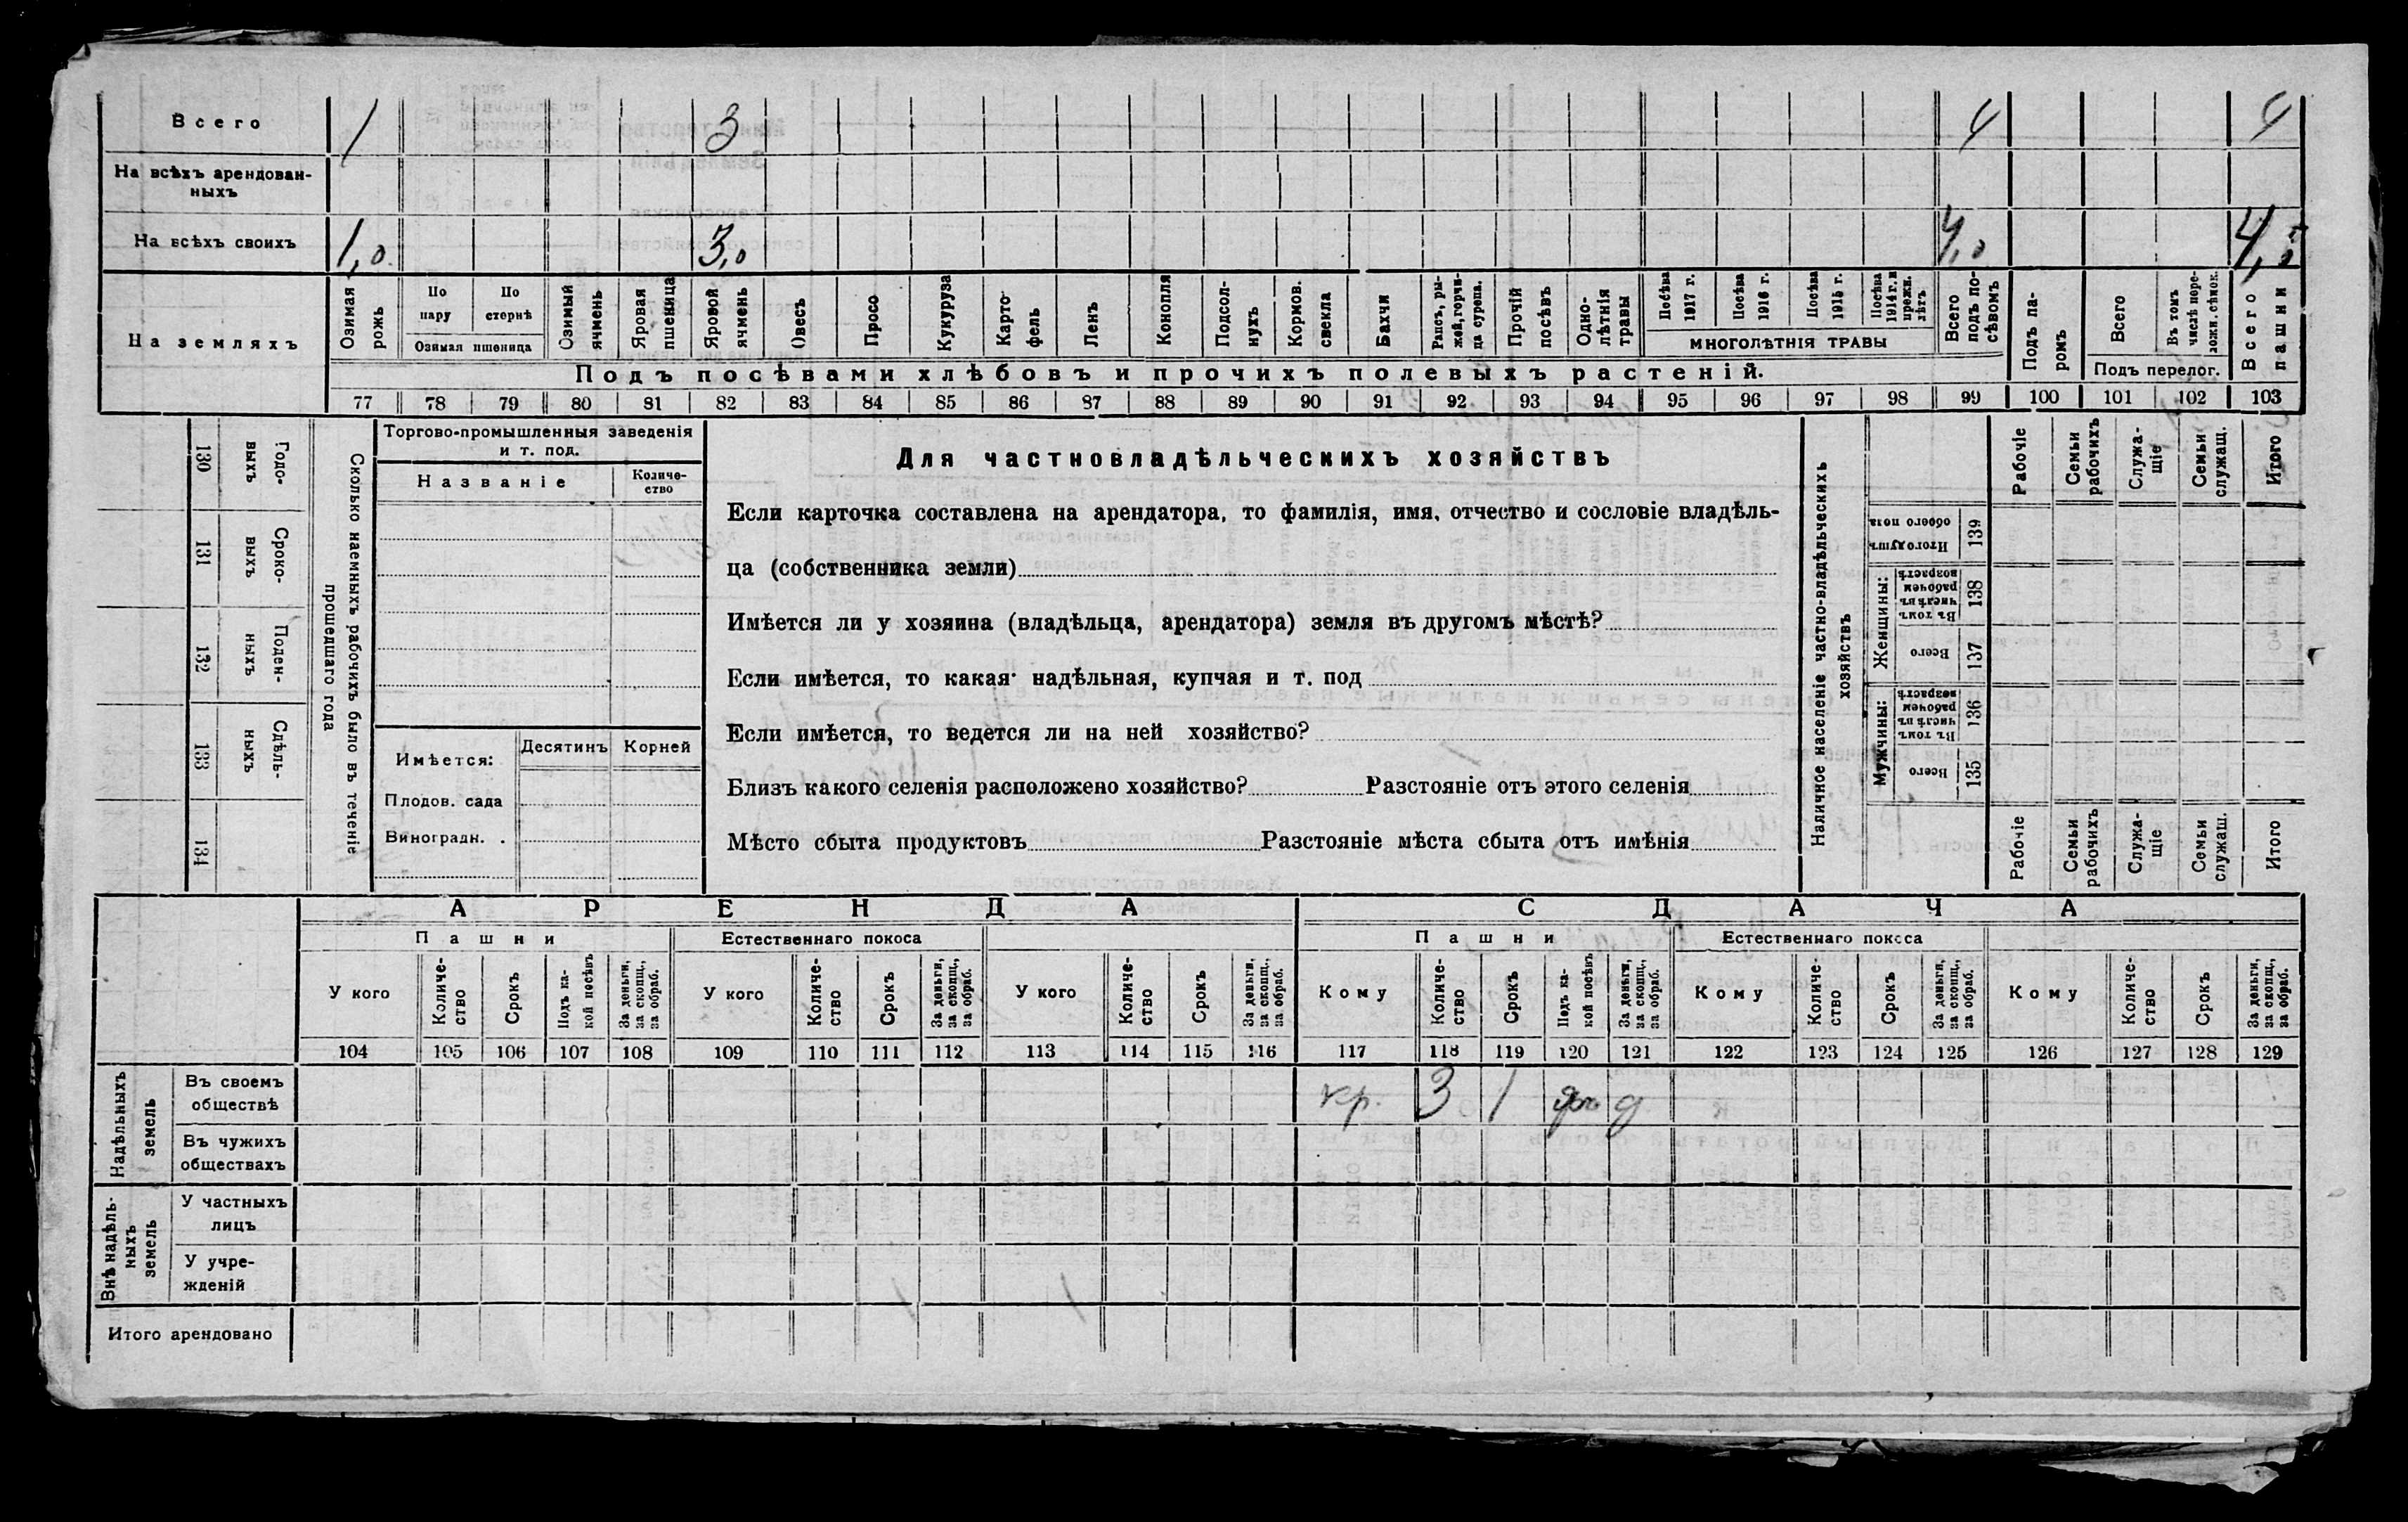 Всего 1 3 4 4
На всѣхъ арендован-
ныхъ
На всѣхъ своихъ 1,0 3,0 4,0
На земляхъ
Озимая рожь
По пару
По стернѣ
Озимая пшеница
Озимый ячмень
Яровая пшеница
Яровой ячмень
Овесъ
Просо
Кукуруза
Карто-
фель
Ленъ
Конопля
Подсол-
нухъ
Кормов. свекла
Бахчи
Рапсъ, ры-
жей, горчи-
ца сурепа.
Прочій посѣвъ
Одно-
лѣтнія травы
Посѣва 1917 г.
Посѣва 1916 г.
Посѣва 1915 г.
Посѣва 1914 г. и прежн. лѣтъ
МНОГОЛѢТНІЯ ТРАВЫ
Всего подъ по-
сѣвомъ
Подъ па-
ромъ
Всего
Въ томъ числѣ пере-
ложн. сѣнок.
Подъ перелог.
Всего пашни
Подъ посѣвами хлѣбовъ и прочихъ полевыхъ растеній.
77 78 79 80 81 82 83 84 85 86 87 88 89 90 91 92 93 94 95 96 97 98 99 100 101 102 103
130 Годо-
выхъ
131 Сроко-
выхъ
132 Поден-
ныхъ
133 Сдѣль-
ныхъ
134
Сколько наемныхъ рабочихъ было въ теченіе
прошедшаго года
Торгово-промышленныя заведенія
и т. под.
Названіе
Количе-
ство
Имѣется:
Десятинъ Корней
Плодов. сада
Виноградн. .
Для частновладѣльческихъ хозяйствъ
Если карточка составлена на арендатора, то фамилія, имя, отчество и сословіе владѣль-
ца (собственника земли)
Имѣется ли у хозяина (владѣльца, арендатора) земля въ другомъ мѣстѣ?
Если имѣется, то какая надѣльная, купчая и т. под
Если имѣется, то ведется ли на ней хозяйство?
Близъ какого селенія расположено хозяйство? Разстояніе отъ этого селенія
Мѣсто сбыта продуктовъ Разстояніе мѣста сбыта отъ имѣнія
Наличное населеніе частно-владѣльческихъ
хозяйствъ
Рабочіе
Семьи рабочихъ
Служа-
щіе
Семьи служащ.
Итого
Итого душъ обоего пола 139
Женщины:
Въ томъ числѣ въ рабочемъ возрастѣ 138
Всего 137
Мужчины:
Въ томъ числѣ въ рабочемъ возрастѣ 136
Всего 135
Рабочіе
Семьи рабочихъ
Служа-
щіе
Семьи служащ.
Итого
АРЕНДА СДАЧА
Пашни Естественнаго покоса Пашни Естественнаго покоса
У кого
Количе-
ство
Срокъ
Подъ ка-
кой посѣвъ
За деньги, за скопщ., за обраб.
У кого
Количе-
ство
Срокъ
За деньги, за скопщ., за обраб.
У кого
Количе-
ство
Срокъ
За деньги, за скопщ., за обраб.
Кому
Количе-
ство
Срокъ
Подъ ка-
кой посѣвъ
За деньги, за скопщ., за обраб.
Кому
Количе-
ство
Срокъ
За деньги, за скопщ., за обраб.
Кому
Количе-
ство
Срокъ
За деньги, за скопщ., за обраб.
104 105 106 107 108 109 110 111 112 113 114 115 116 117 118 119 120 121 122 123 124 125 126 127 128 129
Надѣльныхъ
земель
Въ своемъ
обществѣ
кр. 3 1 д
Въ чужихъ
обществахъ
Внѣ надѣль-
ныхъ
земель
У частныхъ
лицъ
У учре-
жденій
Итого арендовано